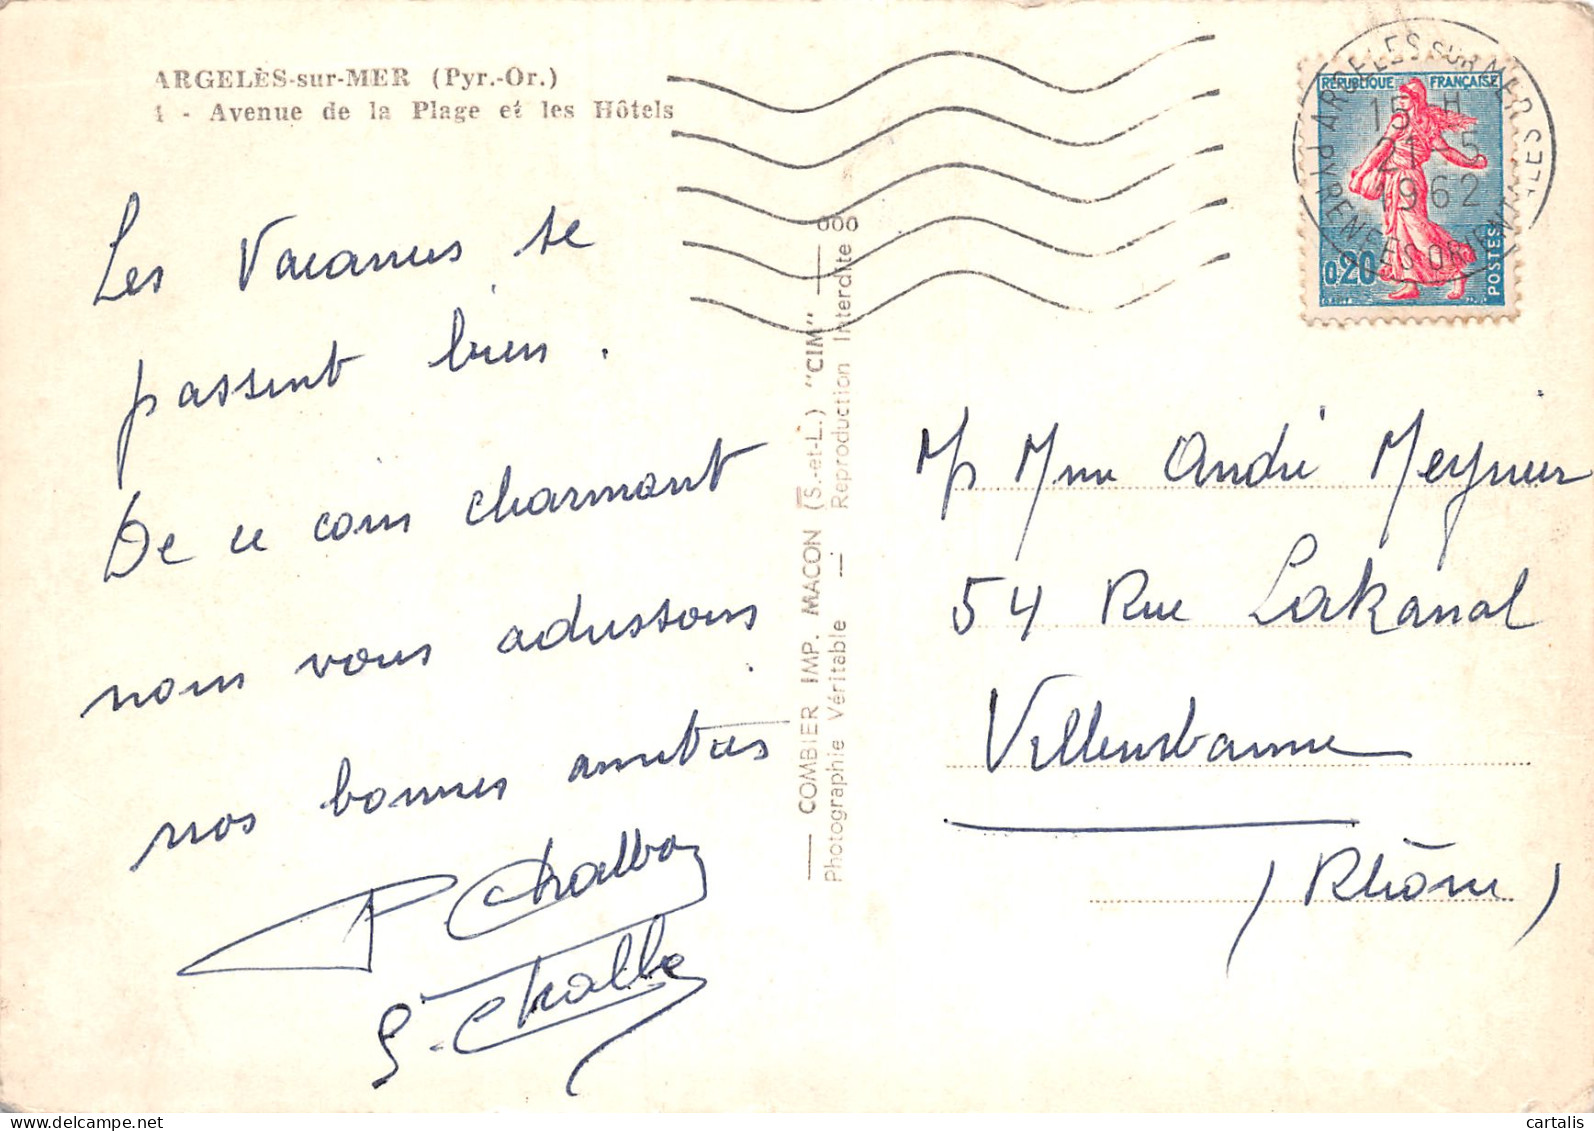 ARGELÈS-sur-MER (Pyr.-Or.)
4 - Avenue de la Plage et les Hôtels
Les Vacances se
passent bien.
De ce coin charmant
nous vous adressons
nos bonnes amitiés
P. Chalbo
G. Chalbo
COMBIER IMP. MACON (S.-et-L.) "CIM"
Photographie Véritable — Reproduction Interdite
RÉPUBLIQUE FRANÇAISE
0,20
POSTES
ARGELES SUR MER
15 H
21 - 5
1962
PYRENEES ORIENTALES
Mr Mme André Meynier
54 Rue Lakanal
Villeurbanne
(Rhône)
cartalis — www.delcampe.net